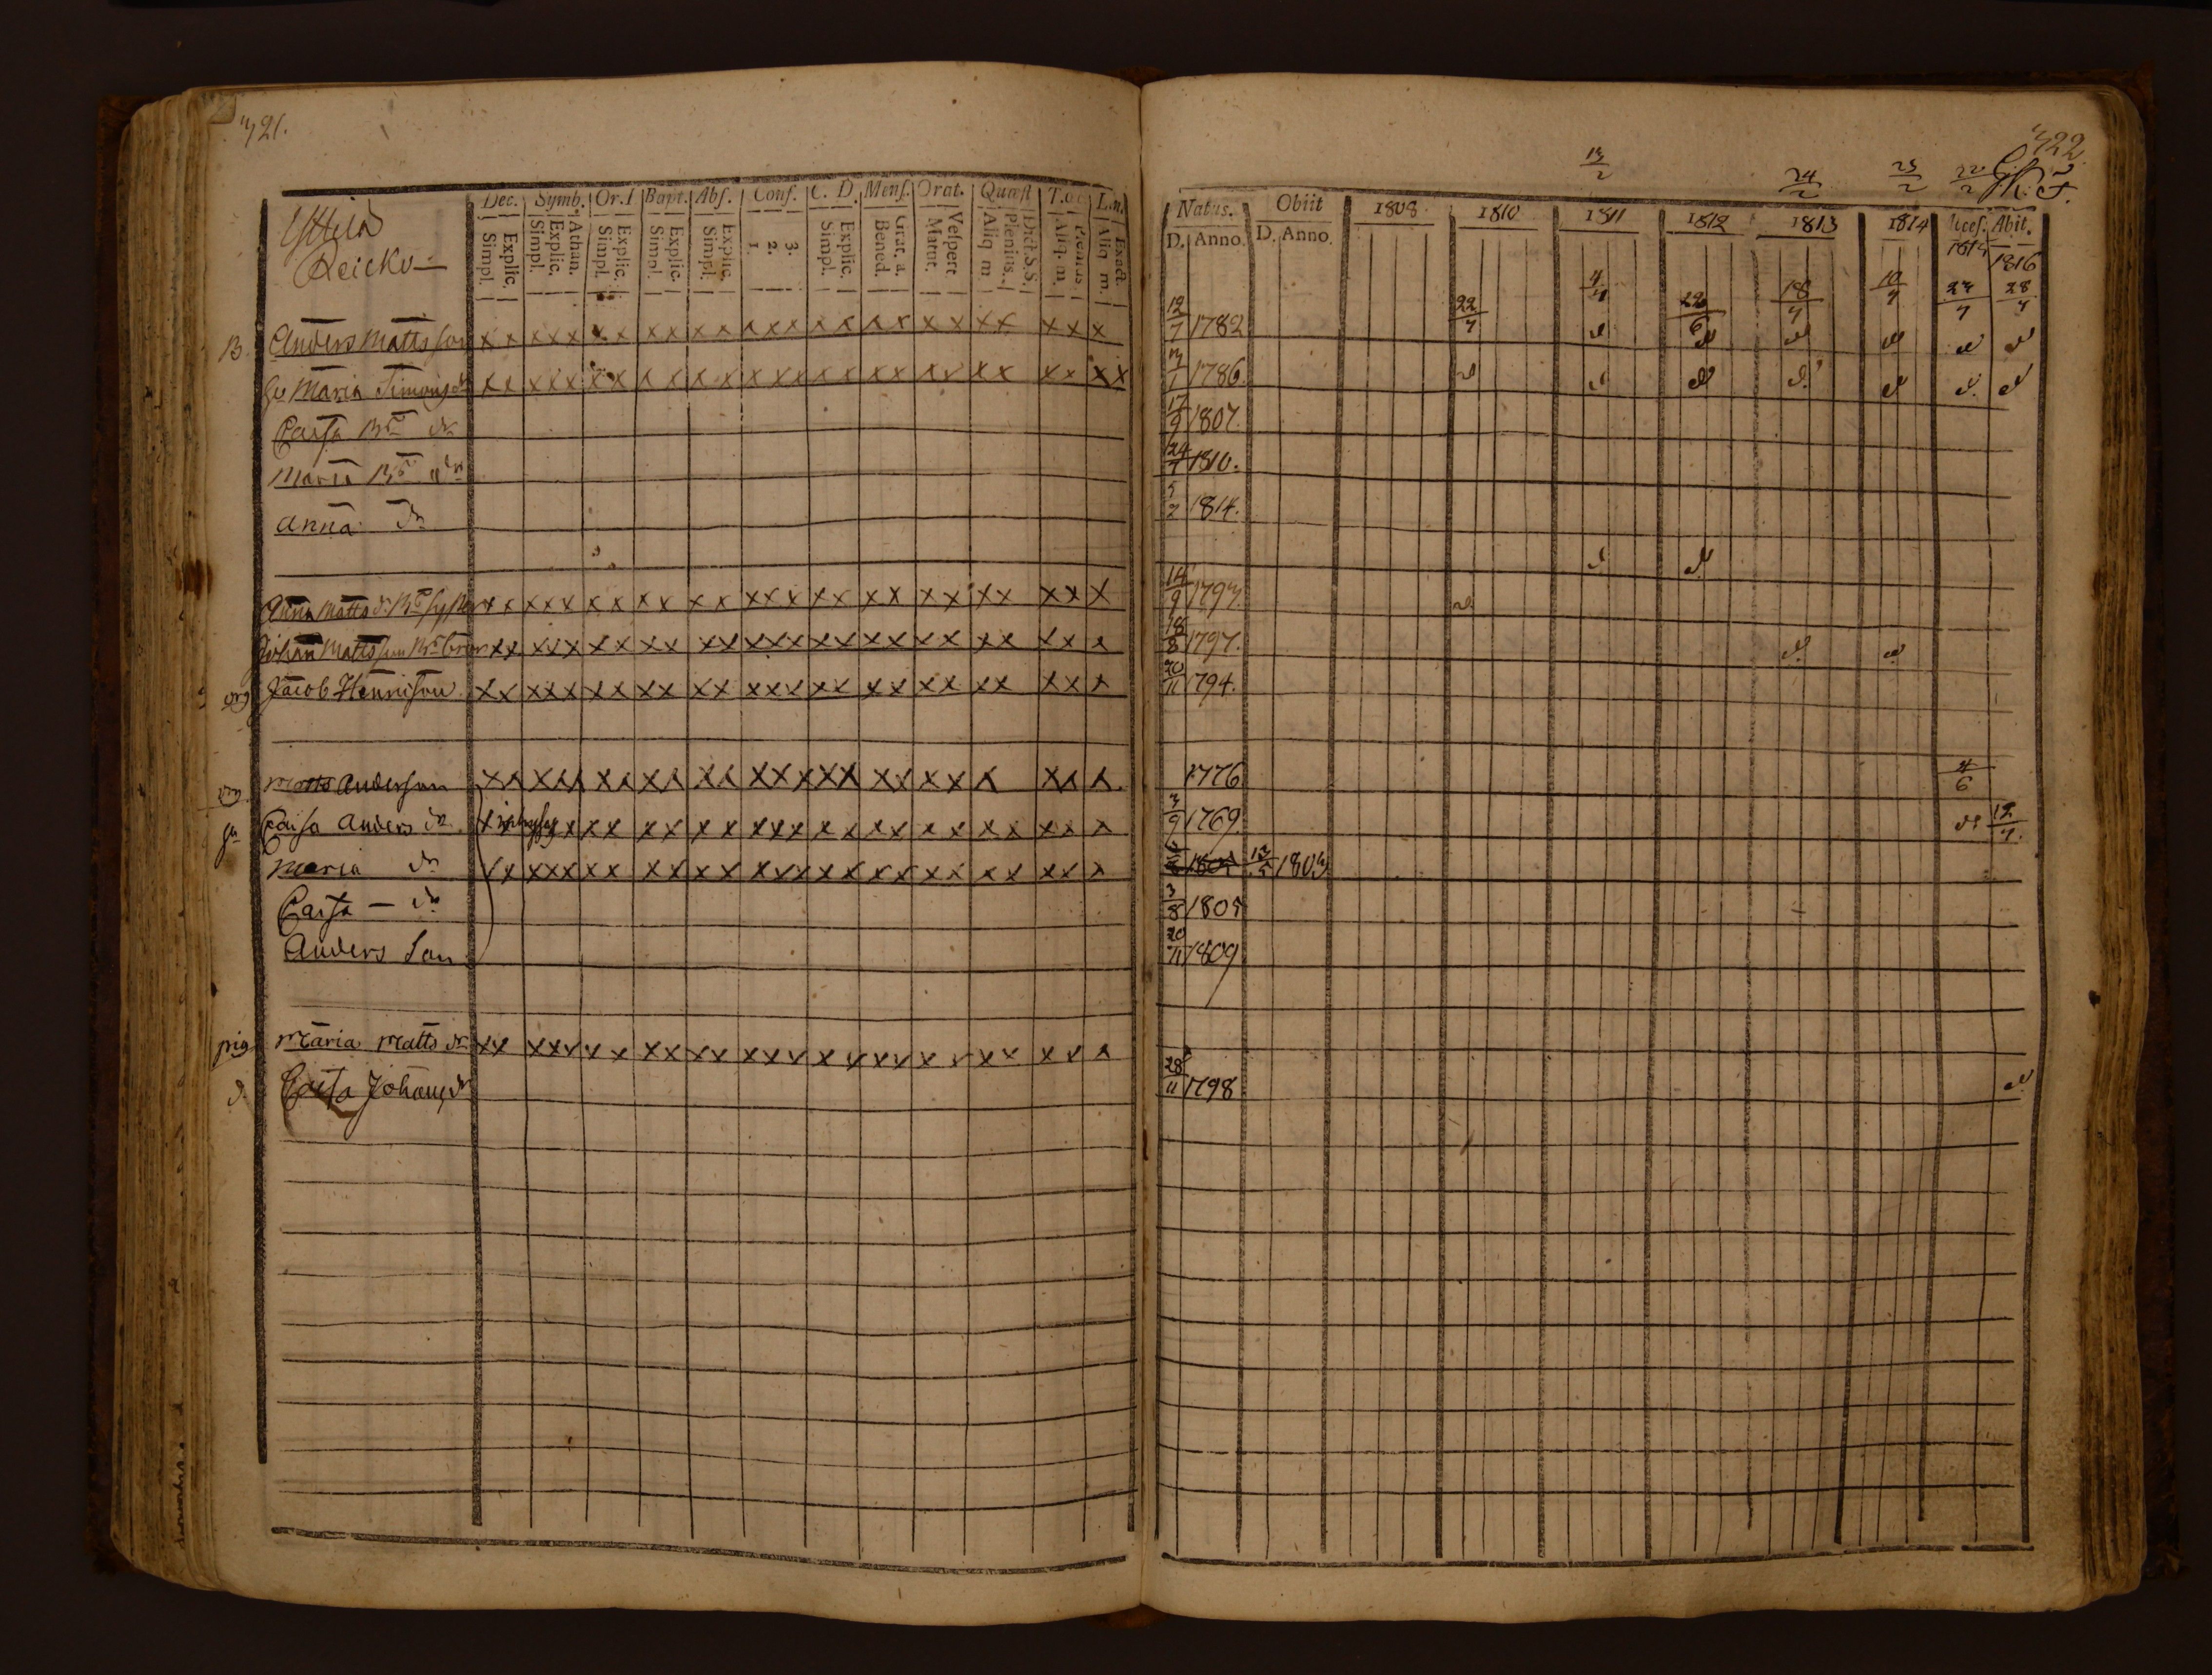 421.
Dec. Symb. Or. D Bapt. Abs. Conf. C. D. Mens. Orat. Quæst T. o.
Explic. Simpl. Athan. Explic. Simpl. Explic. Simpl. Explic. Simpl. Explic. Simpl. 3. 2. 1. Explic. Simpl. Grat. a. Bened. Vespert. Matut. Dict. S. S. Plenius. Aliq m Plenius Aliq. m. Exact. Aliq m.
Reicko
B. Anders Mattsson x x x x x x x x x x x x x x x x x x x x x x x x x x
Hu Maria Simonsdr x x x x x x x x x x x x x x x x x x x x x x x x x x x
Caisa Bs dr
Maria Bs dr
Anna dr
Anna Matts dr Bs syster x x x x x x x x x x x x x x x x x x x x x x x x x x
Johan Mattsson Bs bror x x x x x x x x x x x x x x x x x x x x x x x x x x
Jacob Henricson x x x x x x x x x x x x x x x x x x x x x x x x x x
Matts Andersson x x x x x x x x x x x x x x x x x x x x x x x x x
Caisa Anders dr
Maria dr x x x x x x x x x x x x x x x x x x x x x x x x x x
Caisa — dr
Anders Son
pig Maria Matts dr x x x x x x x x x x x x x x x x x x x x x x x x x x
d. Caisa Johansdr
422.
13/2 24/2 23/2 22/2
Natus. Obiit 1808 1810 1811 1812 1813 1814 Acces. Abit.
D. Anno. D. Anno. 1815 1816
12/7 1782 22/7 4/7 22/6 18/7 10/7 27/7 28/7
1786.
17/9 1807.
24/7 1810.
5/2 1814.
14/9 1793.
18/8 1797.
20/11 1794.
1776 4/6
3/9 1769 12/7.
1803
3/8 1805
20/11 1809
28/11 1798